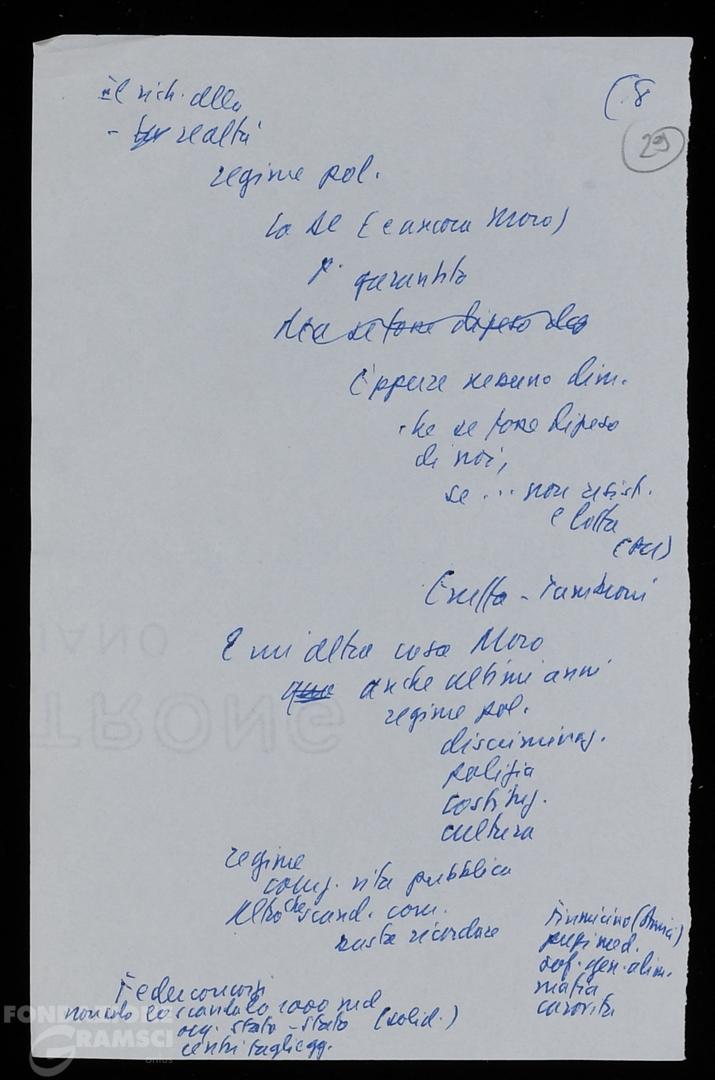 Il rich. alla
(.8
- realtà
29
regime pol.
la DC (e ancora Moro)
garantita
Ma se fosse dipeso da
Eppure nessuno dim.
che se fosse dipeso
di noi,
se ... non resist.
e lotta
Truffa - Tambroni
E un'altra cosa Moro
anche ultimi anni
regime pol.
discriminaz.
polizia
costituz.
cultura
regime
vita pubblica
Altro che scand. com.
basta ricordare
Fiumicino
sof. gen. alim.
mafia
carovita
Federconsorzi
scandalo 1000 md
stato - stato (solid.)
IANO
TRONG
FONDAZIONE
GRAMSCI
onlus